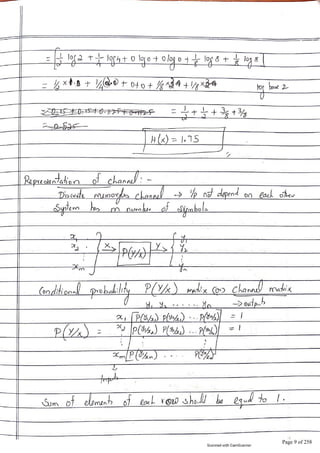 = [ 1/2 log 2 + 1/4 log 4 + 0 log 0 + 0 log 0 + 1/8 log 8 + 1/8 log 8 ]
log base 2
= 1/2 + 1/2 + 3/8 + 3/8
H(x) = 1.75
Representation of channel : -
Discrete memoryless channel → i/p not depend on each other
System has m number of symbols
x₁ y₁
x₂ X → P(Y/X) Y → y₂
xm yn
Conditional probability P(Y/X) matrix (or) Channel matrix
y₁ y₂ ...... yn → outputs
x₁ [ P(y₁/x₁) P(y₂/x₁) ... P(yn/x₁) ] = 1
P(Y/X) = x₂ P(y₁/x₂) P(y₂/x₂) ... = 1
xm P(y₁/xm) ....
Inputs
Sum of elements of each row should be equal to 1.
Scanned with CamScanner
Page 9 of 258